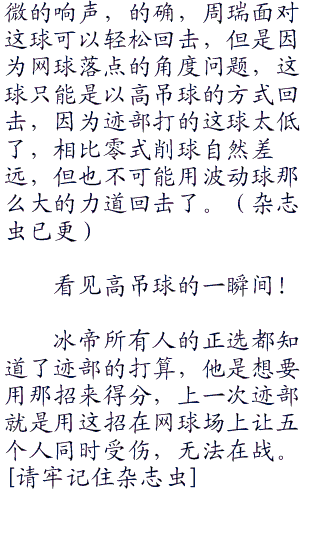 微的响声，的确，周瑞面对
这球可以轻松回击，但是因
为网球落点的角度问题，这
球只能是以高吊球的方式回
击，因为迹部打的这球太低
了，相比零式削球自然差
远，但也不可能用波动球那
么大的力道回击了。（杂志
虫已更）
看见高吊球的一瞬间！
冰帝所有人的正选都知
道了迹部的打算，他是想要
用那招来得分，上一次迹部
就是用这招在网球场上让五
个人同时受伤，无法在战。
[请牢记住杂志虫]